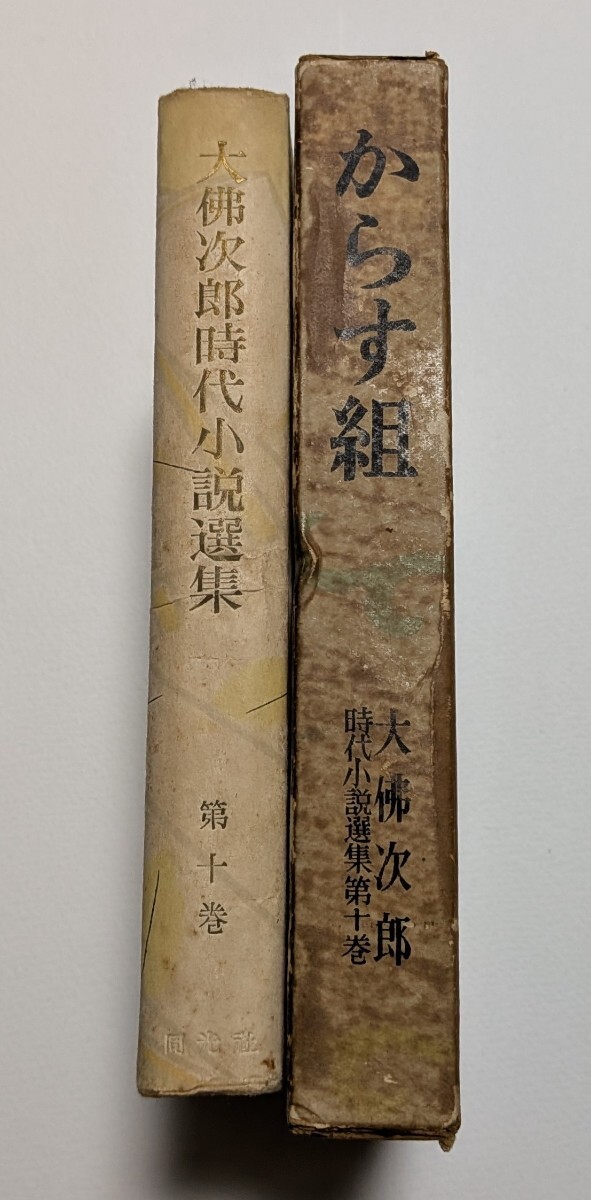 大佛次郎時代小説選集
第十巻
からす組
大佛次郎
時代小説選集第十巻